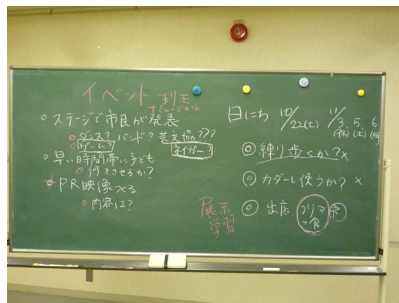 イベント
○ステージで市民が発表
ダンス? バンド? 芸文協???
ゲーム? ネイガー?
○早い時間帯に子ども
何をさせるか?
PR映像つくる
内容は?
展示
学習
日にち 10/22(土) 11/3, 5, 6
(祝)(土)(日)
◎練り歩くか? ×
◎カダーレ使うか? ×
◎出店 フリマ 食
+食